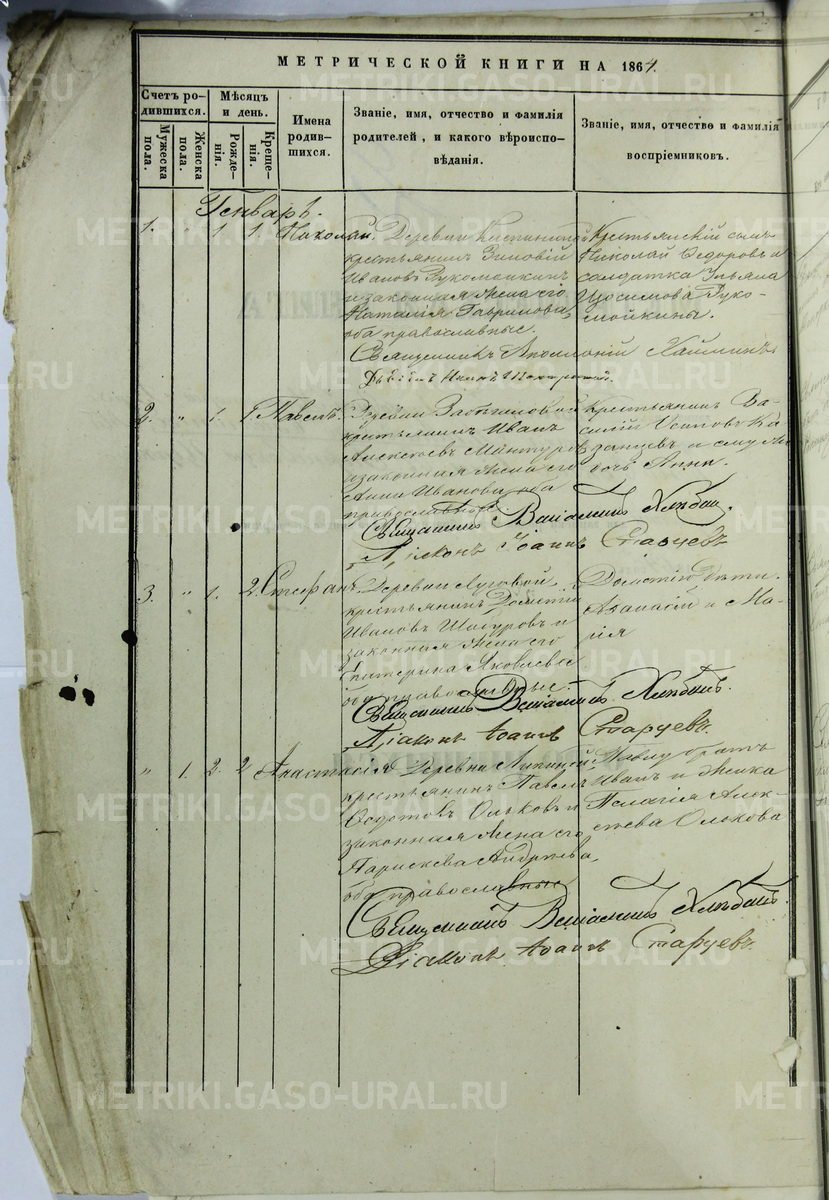 МЕТРИЧЕСКОЙ КНИГИ НА 1864.
Счетъ ро-
дившихся.
Мужеска
пола.
Женска
пола.
Мѣсяцъ
и день.
Рожде-
нія.
Креще-
нія.
Имена
родив-
шихся.
Званіе, имя, отчество и фамилія
родителей, и какого вѣроиспо-
вѣданія.
Званіе, имя, отчество и фамилія
воспріемниковъ.
Генварь.
1. " 1. 1. Николай.
Деревни
крестьянинъ Зиновій
Ивановъ Рукомойкинъ
и законная жена его
Наталія Гаврилова,
оба православные.
Крестьянскій сынъ
Николай Ѳедоровъ и
солдатка Ульяна
Зосимова Руко-
мойкины.
Священникъ Аполлоній
2. " 1. 1 Павелъ.
Деревни
крестьянинъ Иванъ
Алексѣевъ
и законная жена его
Анна Иванова, оба
православные.
Крестьянинъ Ва-
силій Осиповъ Ка-
занцевъ и
дочь Анна.
Священникъ Веніаминъ Хлѣбинъ.
Діаконъ Іоаннъ Старцевъ
3. " 1. 2. Стефанъ.
Деревни Луговой
крестьянинъ Дометій
Ивановъ и
законная жена его
Екатерина Яковлева
оба православные.
Дометію дѣти
Аѳанасій и Ма-
рія
Священникъ Веніаминъ Хлѣбинъ.
Діаконъ Іоаннъ Старцевъ.
" 1. 2. 2 Анастасія
Деревни Липиной
крестьянинъ Павелъ
Ѳедотовъ Ольковъ и
законная жена его
Параскева Андреева,
оба православные
Павлу братъ
Иванъ и жена
Пелагія Алек-
сѣева Олькова
Священникъ Веніаминъ Хлѣбинъ.
Діаконъ Іоаннъ Старцевъ.
METRIKI.GASO-URAL.RU